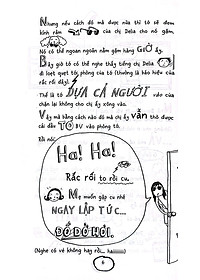 Nhưng nếu cách đó mà được nào thì tớ sẽ đem
kính râm của chị Delia cho nó gặm.
Nó có thể ngoan ngoãn nằm gặm hàng GIỜ ấy.
Bây giờ tớ có thể nghe thấy tiếng chị Delia
đi loẹt quẹt tới phòng của tớ (thường là báo hiệu của
rắc rối đây).
Thế là tớ DỰA CẢ NGƯỜI vào cửa
chặn lại không cho chị ấy xông vào.
Vậy mà bằng cách nào đó mà chị ấy vẫn thò được
cái đầu TO BV vào phòng tớ.
Tôi nói:
Ha! Ha!
Rắc rối to rồi cu.
Mẹ muốn gặp cu nhé
NGAY LẬP TỨC...
ĐỒ DỞ HƠI.
(Nghe có vẻ không hay rồi...
6